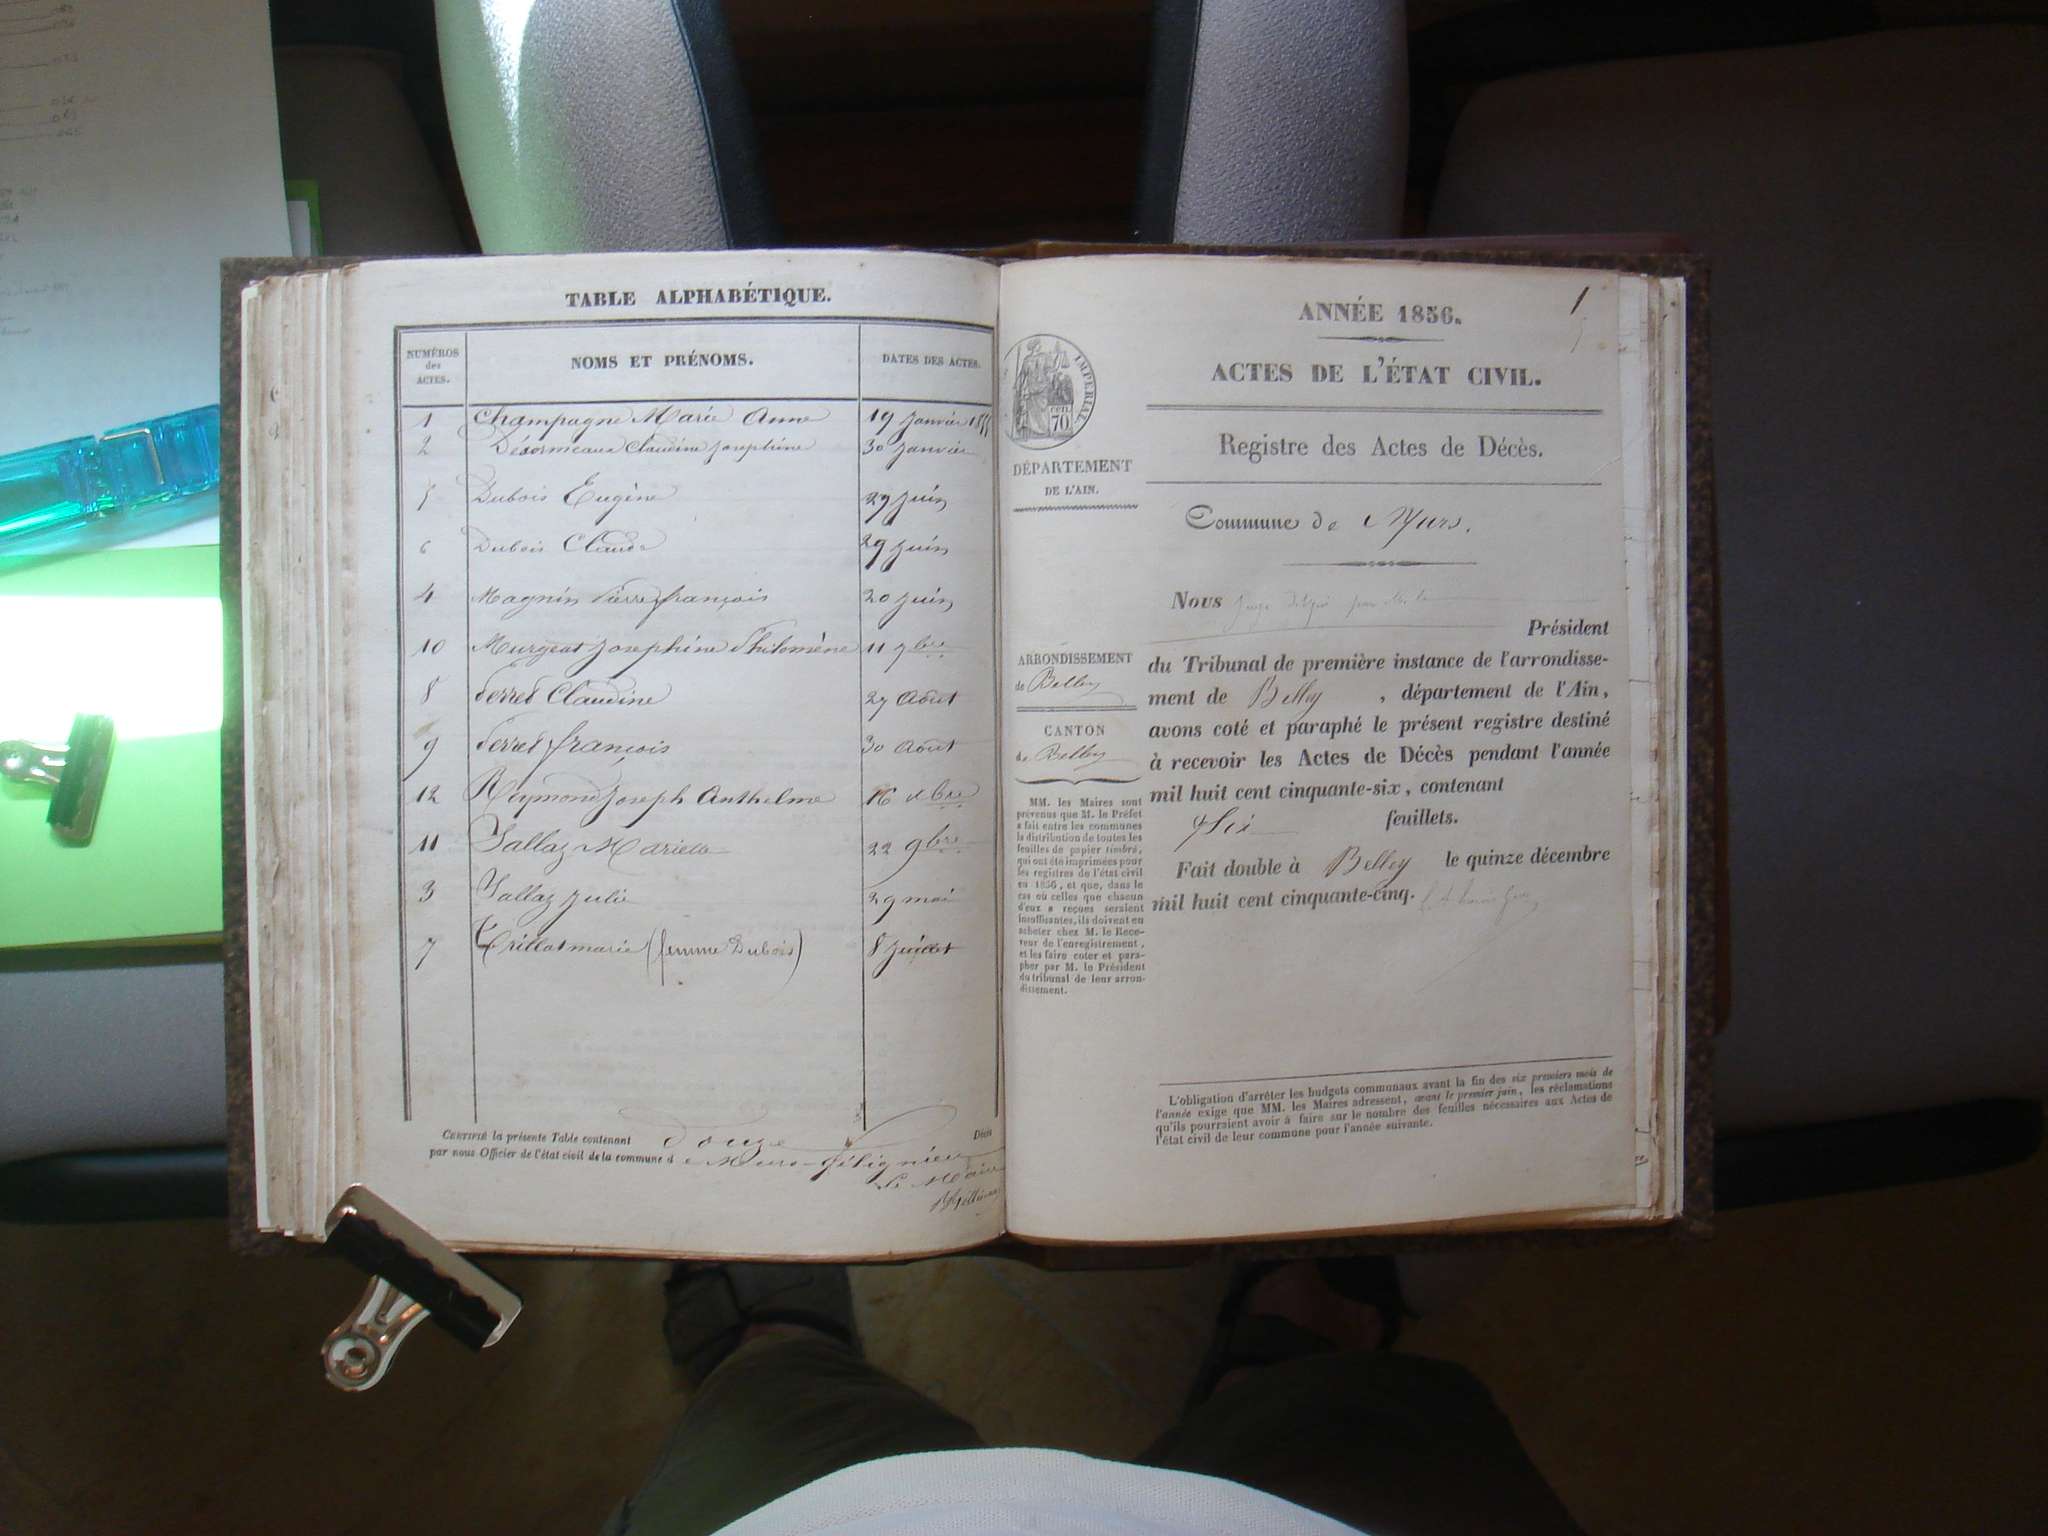 TABLE ALPHABÉTIQUE.
NUMÉROS des ACTES. NOMS ET PRÉNOMS. DATES DES ACTES.
1 Champagne Marie Anne 19 Janvier 1855
2 Désormeaux Claudine Joséphine 30 Janvier
5 Dubois Eugène 29 Juin
6 Dubois Claude 29 Juin
4 Magnin Pierre françois 20 Juin
10 Murgeat Joséphine Philomène 11 9bre
8 Perret Claudine 27 Août
9 Perret françois 30 Août
12 Reymond Joseph Anthelme 16 Xbre
11 Sallaz Mariette 22 9bre
3 Sallaz Julie 29 mai
7 Trillat marie (femme Dubois) 8 Juillet
CERTIFIÉ la présente Table contenant douze Décès
par nous Officier de l'état civil de la commune de Murs-Gélignieu
Le Maire
ANNÉE 1856.
1
ACTES DE L'ÉTAT CIVIL.
IMPERIAL
CENT.
70
Registre des Actes de Décès.
DÉPARTEMENT
DE L'AIN.
Commune de Murs.
Nous
Président
du Tribunal de première instance de l'arrondisse-
ment de Belley , département de l'Ain,
avons coté et paraphé le présent registre destiné
à recevoir les Actes de Décès pendant l'année
mil huit cent cinquante-six, contenant
Six feuillets.
Fait double à Belley le quinze décembre
mil huit cent cinquante-cinq.
ARRONDISSEMENT
de Belley
CANTON
de Belley
MM. les Maires sont
prévenus que M. le Préfet
a fait entre les communes
la distribution de toutes les
feuilles de papier timbré,
qui ont été imprimées pour
les registres de l'état civil
en 1856, et que, dans le
cas où celles que chacun
d'eux a reçues seraient
insuffisantes, ils doivent en
acheter chez M. le Rece-
veur de l'enregistrement,
et les faire coter et para-
pher par M. le Président
du tribunal de leur arron-
dissement.
L'obligation d'arrêter les budgets communaux avant la fin des six premiers mois de
l'année exige que MM. les Maires adressent, avant le premier juin, les réclamations
qu'ils pourraient avoir à faire sur le nombre des feuilles nécessaires aux Actes de
l'état civil de leur commune pour l'année suivante.